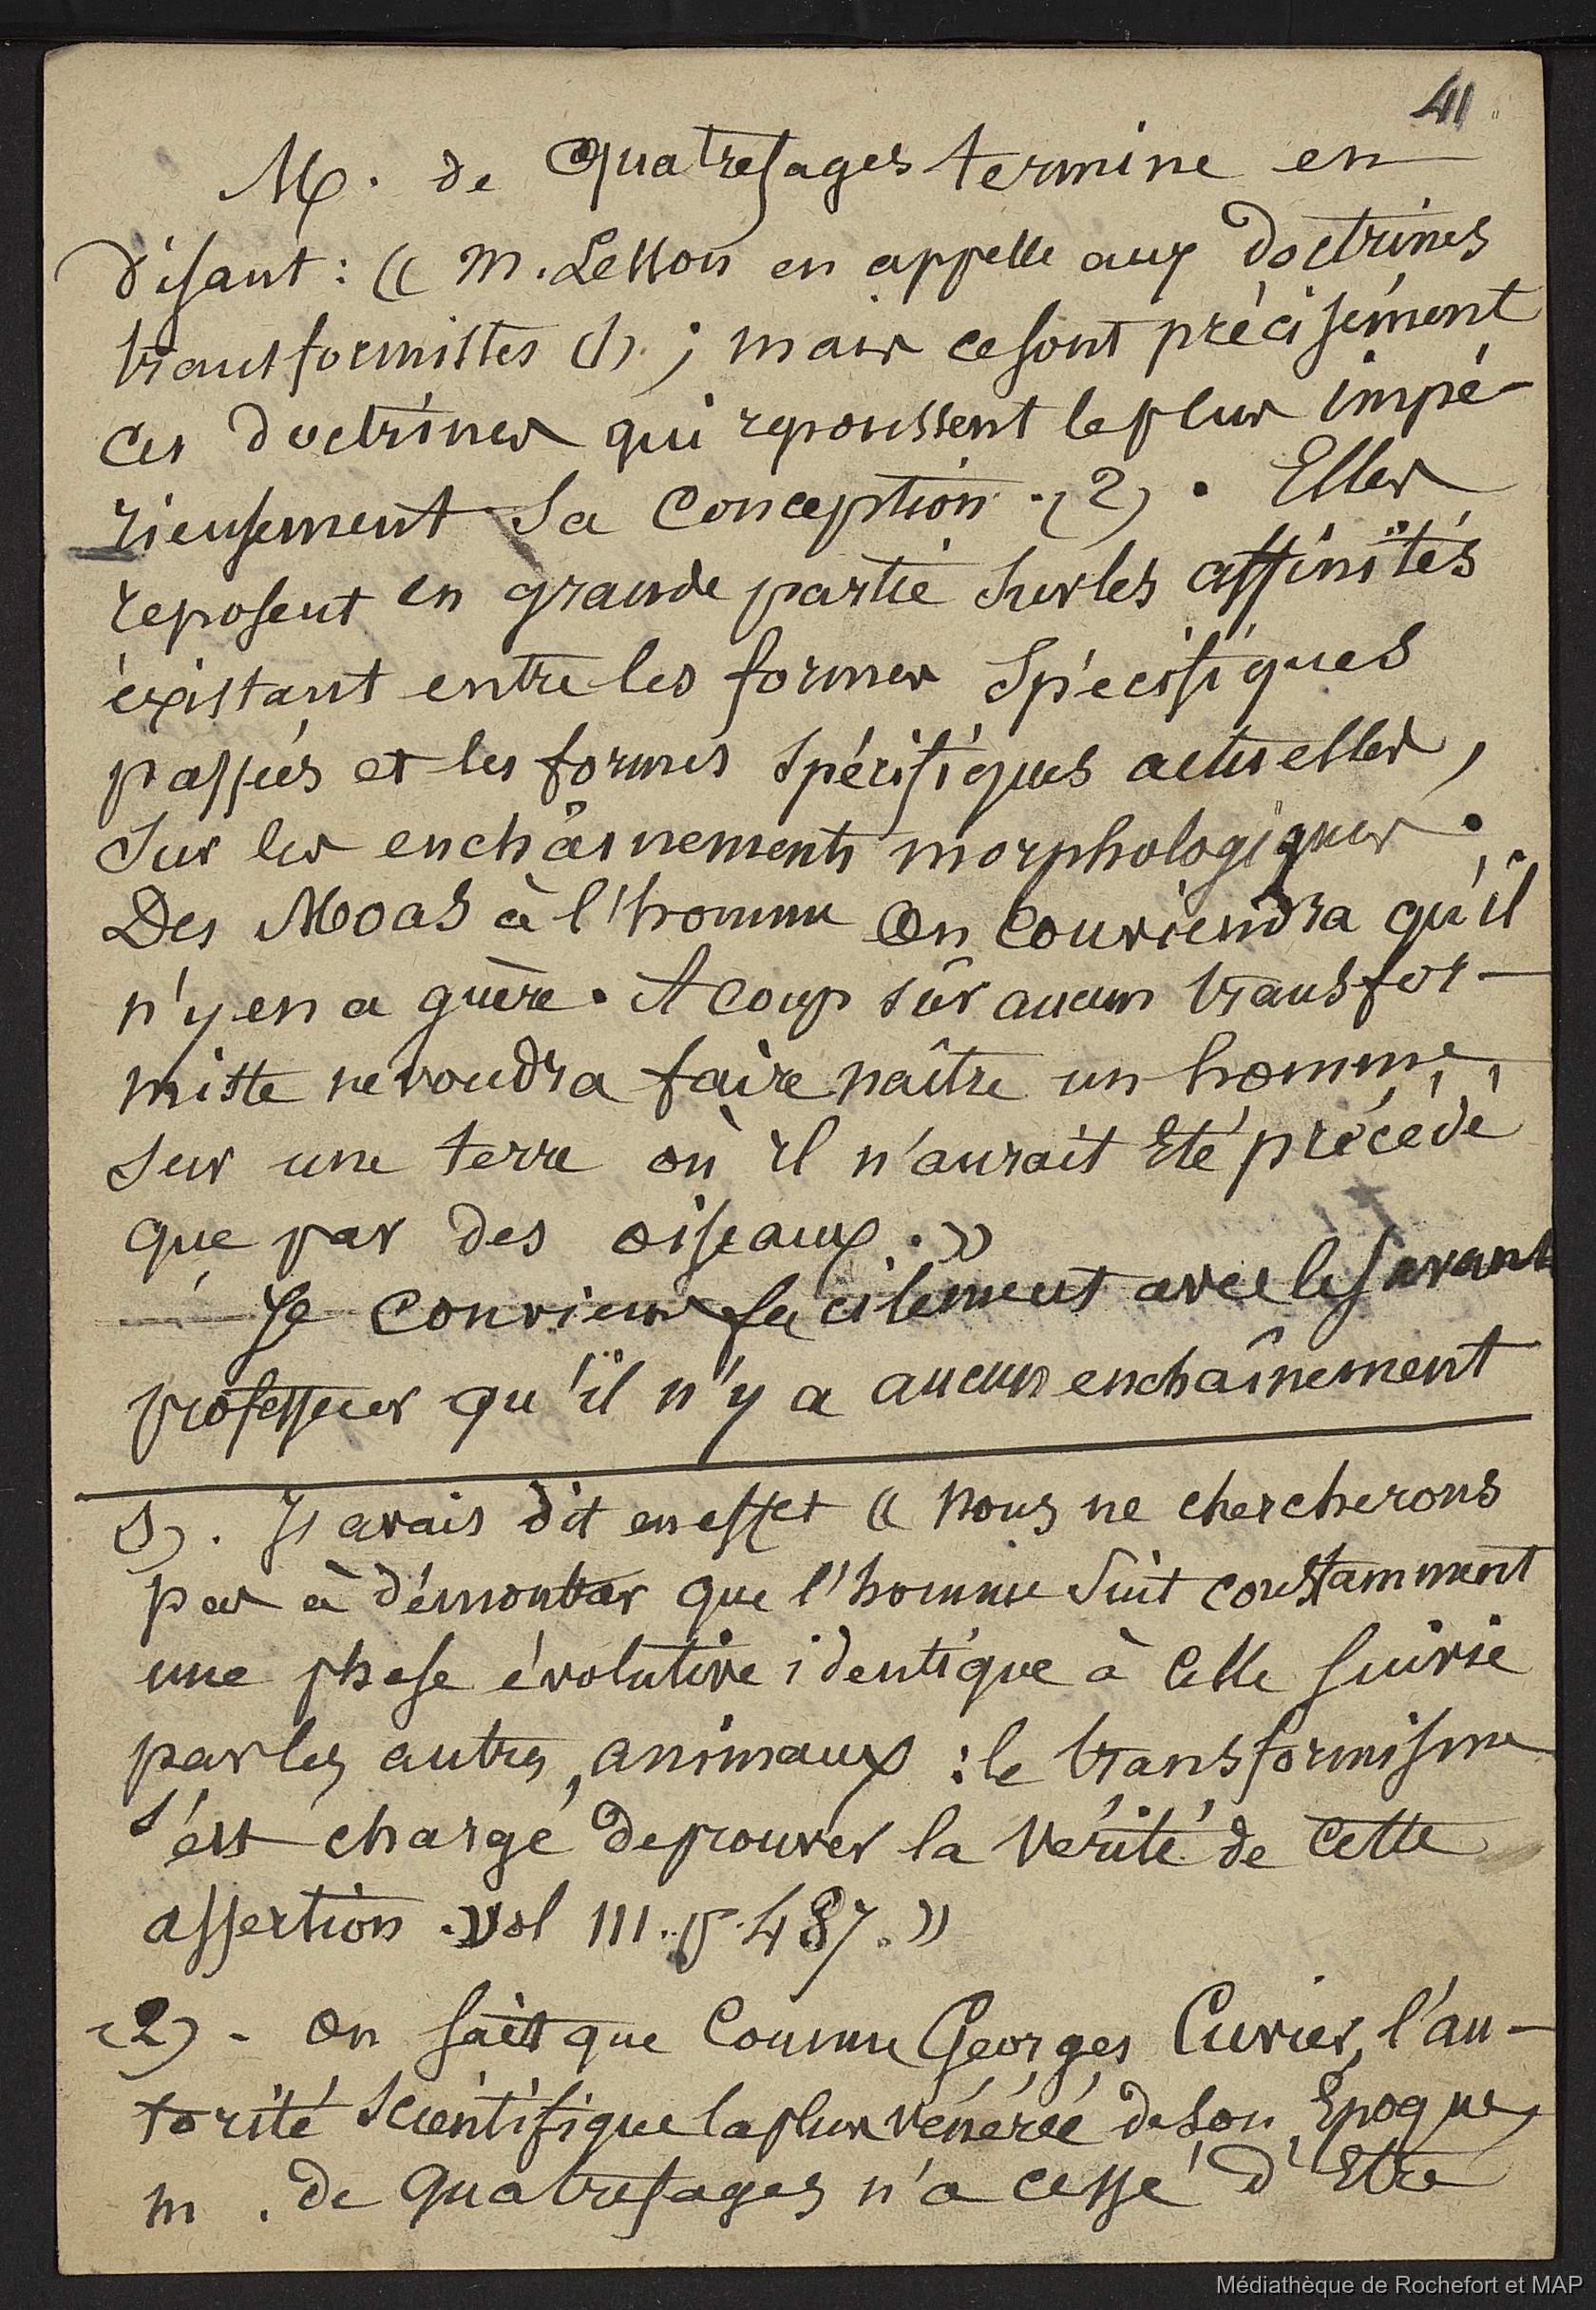 41
M. de Quatrefages termine en
disant : « M. Lesson en appelle aux doctrines
transformistes (1). ; mais ce sont précisément
ces doctrines qui repoussent le plus impé-
rieusement sa conception. (2). Elles
reposent en grande partie sur les affinités
éxistant entre les formes spécifiques
passées et les formes spécifiques actuelles,
sur les enchâinements morphologiques.
Des Moas à l'homme on conviendra qu'il
n'y en a guère. A coup sûr aucun transfor-
miste ne voudra faire naître un homme,
sur une terre où il n'aurait été précédé
que par des oiseaux. »
Je conviens facilement avec le savant
professeur qu'il n'y a aucun enchaînement
(1). J'avais dit en effet « Nous ne chercherons
pas à démontrer que l'homme suit constamment
une phase évolutive identique à celle suivie
par les autres animaux : le transformisme
s'est chargé de prouver la vérité de cette
assertion. vol III. p. 487. »
(2) - On sait que comme Georges Cuvier, l'au-
torité scientifique la plus vénérée de son Epoque,
M. de Quatrefages n'a cessé d'Etre
Médiathèque de Rochefort et MAP